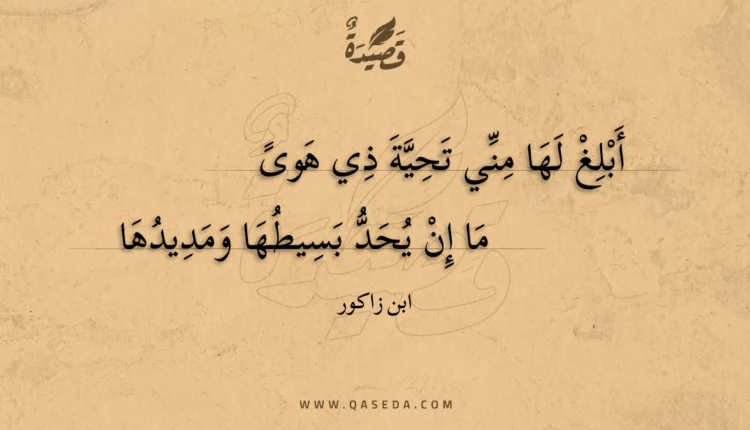 قَصِيدَةٌ
أَبْلِغْ لَهَا مِنِّي تَحِيَّةَ ذِي هَوىً
مَا إِنْ يُحَدُّ بَسِيطُهَا وَمَدِيدُهَا
ابن زاكور
WWW.QASEDA.COM